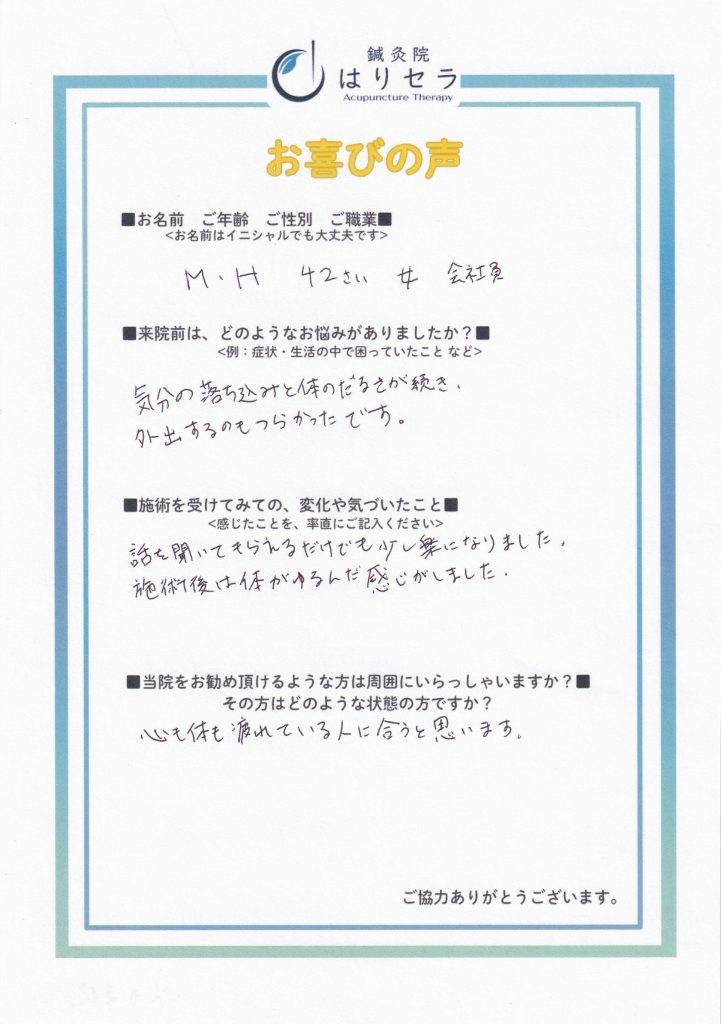 鍼灸院
はりセラ
Acupuncture Therapy
お喜びの声
■お名前　ご年齢　ご性別　ご職業■
<お名前はイニシャルでも大丈夫です>
M・H　42さい　女　会社員
■来院前は、どのようなお悩みがありましたか？■
<例：症状・生活の中で困っていたこと など>
気分の落ち込みと体のだるさが続き、
外出するのもつらかったです。
■施術を受けてみての、変化や気づいたこと■
<感じたことを、率直にご記入ください>
話を聞いてもらえるだけでも少し楽になりました。
施術後は体がゆるんだ感じがしました。
■当院をお勧め頂けるような方は周囲にいらっしゃいますか？■
その方はどのような状態の方ですか？
心も体も疲れている人に合うと思います。
ご協力ありがとうございます。